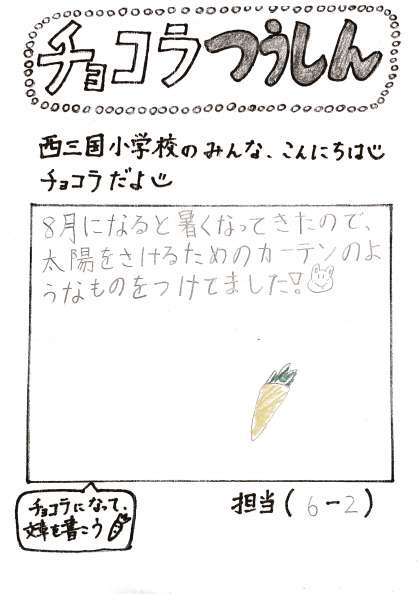 チョコラつうしん
西三国小学校のみんな、こんにちは
チョコラだよ
8月になると暑くなってきたので、
太陽をさけるためのカーテンのよ
うなものをつけてました!
チョコラになって、
文章を書こう
担当(6-2)